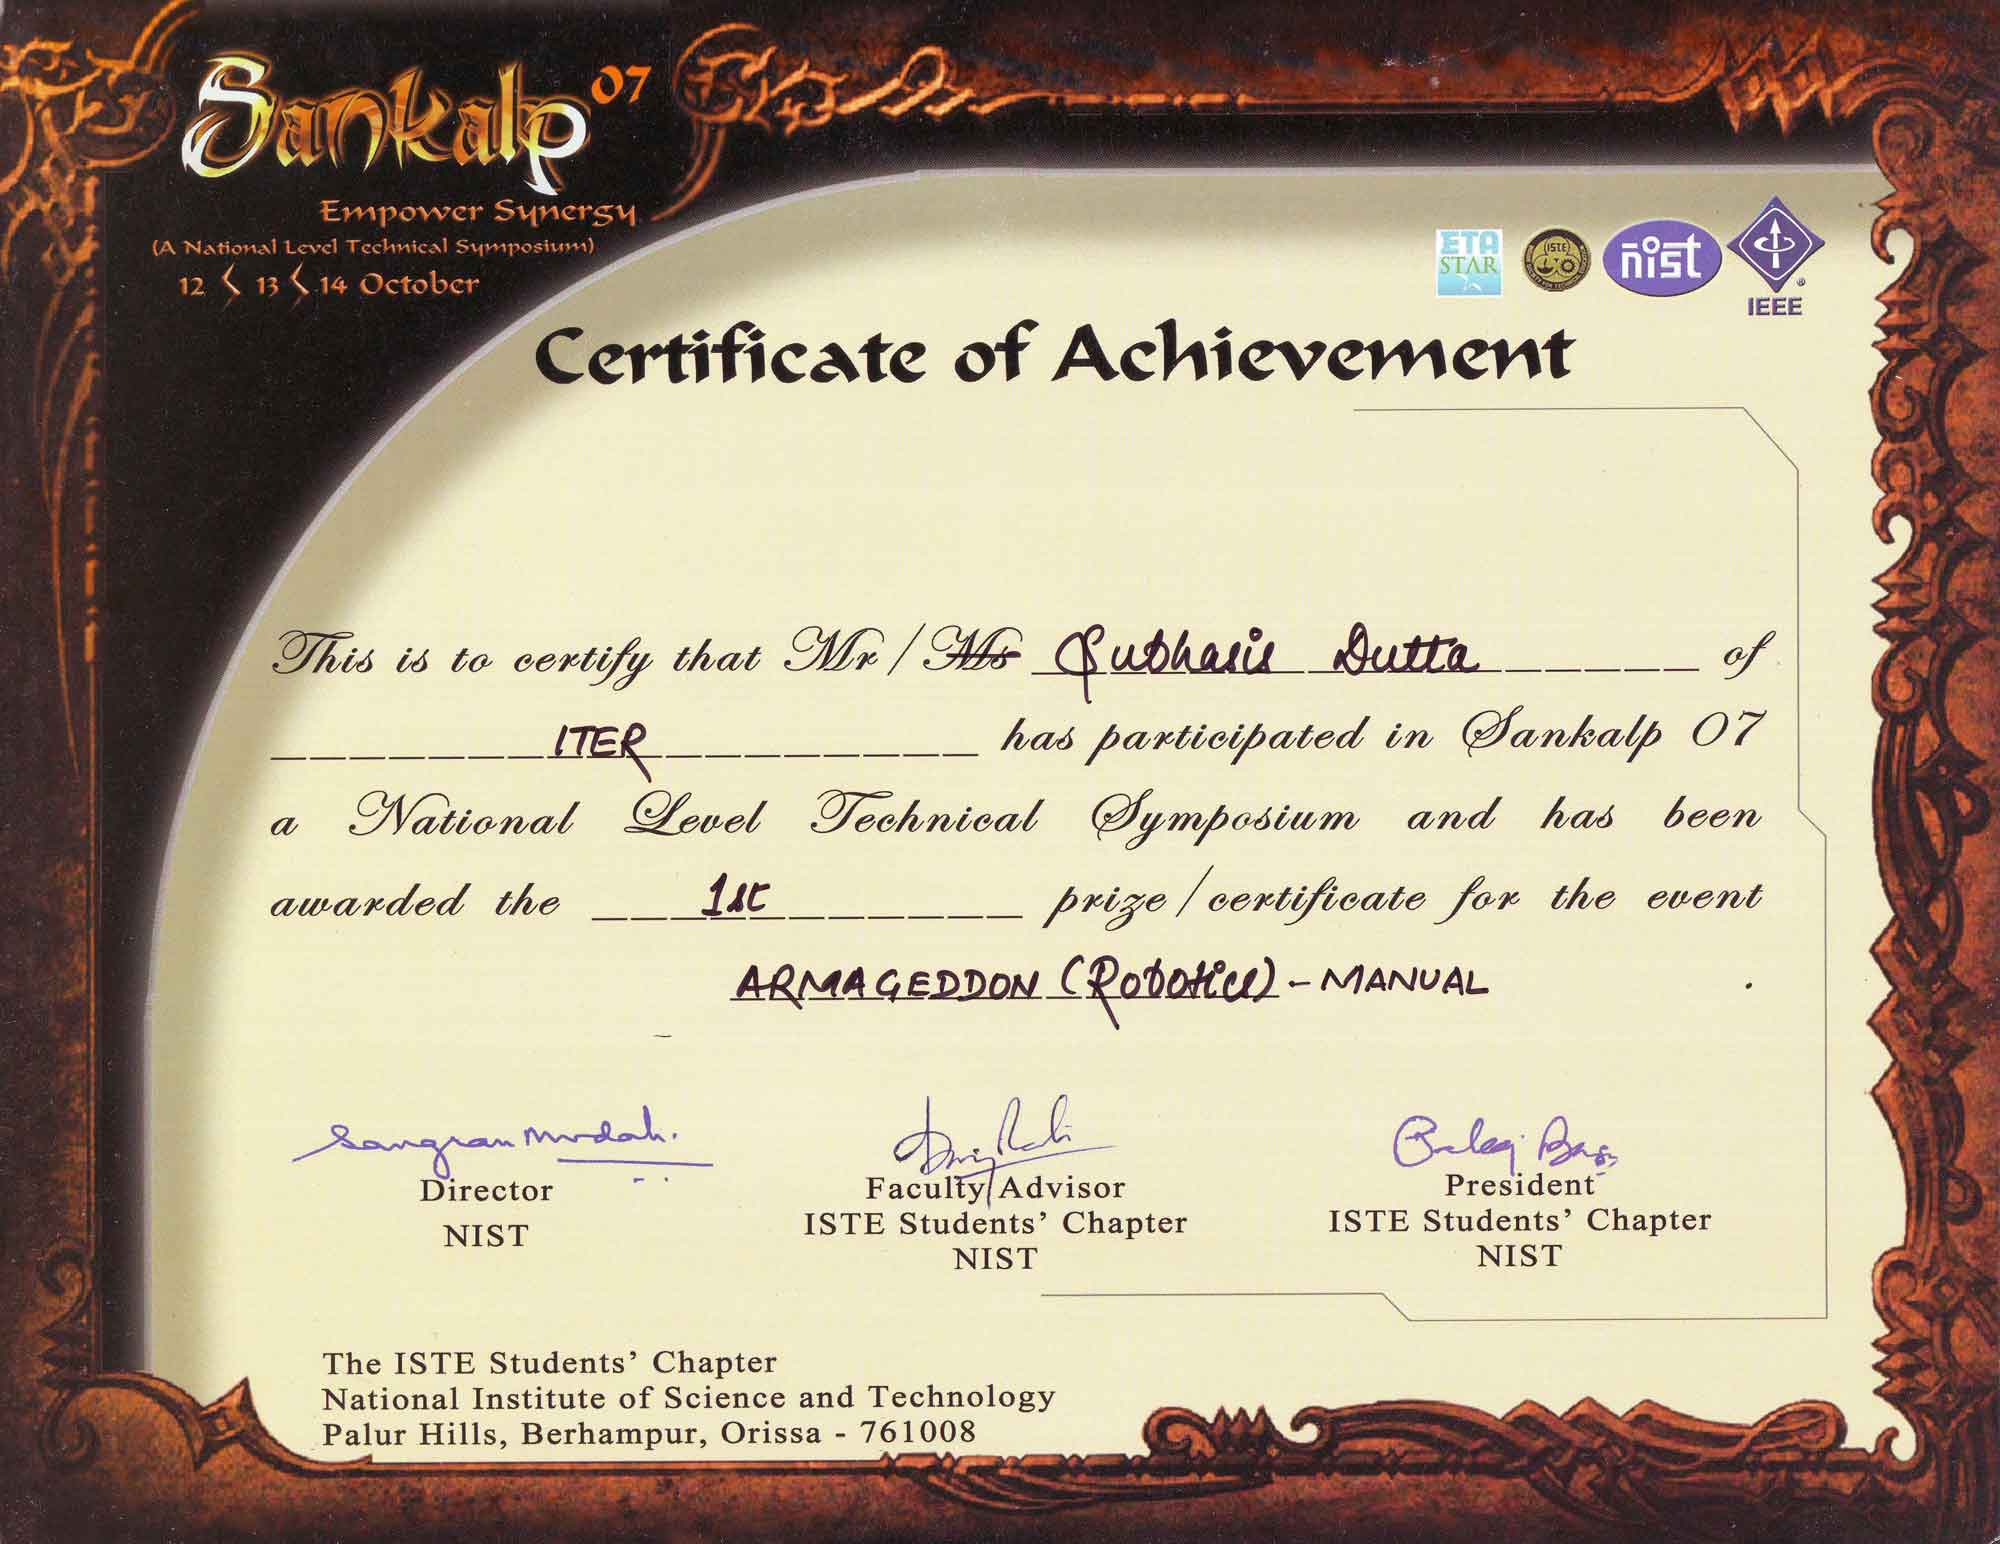 Sankalp 07
Empower Synergy
(A National Level Technical Symposium)
12 13 14 October
ETA STAR
ISTE
nist
IEEE
Certificate of Achievement
This is to certify that Mr / Ms Subhasis Dutta of
ITER has participated in Sankalp 07
a National Level Technical Symposium and has been
awarded the 1st prize / certificate for the event
ARMAGEDDON (Robotics) - MANUAL .
Director
NIST
Faculty Advisor
ISTE Students' Chapter
NIST
President
ISTE Students' Chapter
NIST
The ISTE Students' Chapter
National Institute of Science and Technology
Palur Hills, Berhampur, Orissa - 761008